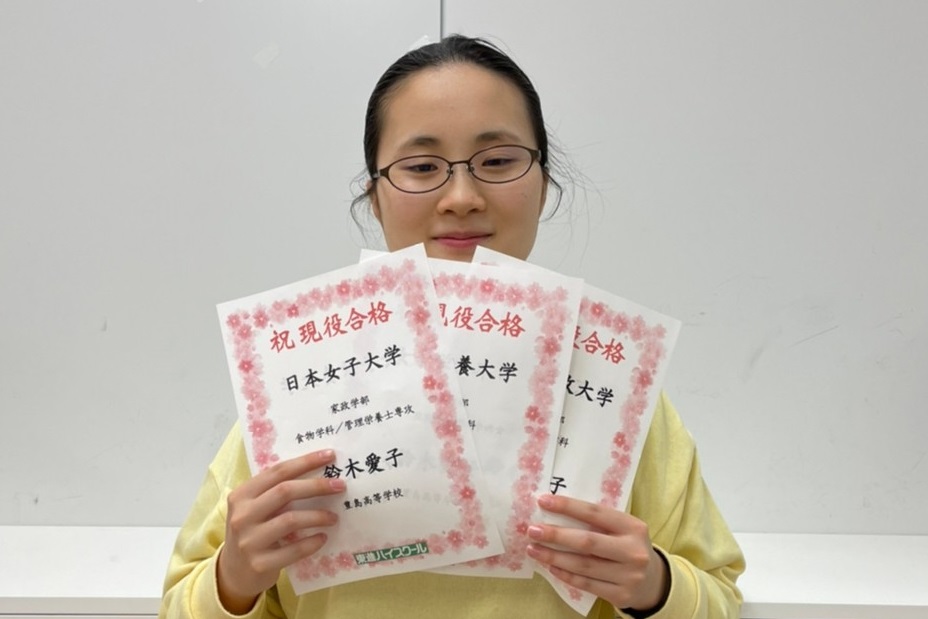 祝 現役合格
日本女子大学
家政学部
食物学科/管理栄養士専攻
鈴木愛子
豊島高等学校
東進ハイスクール
役合格
養大学
科
合格
大学
科
子